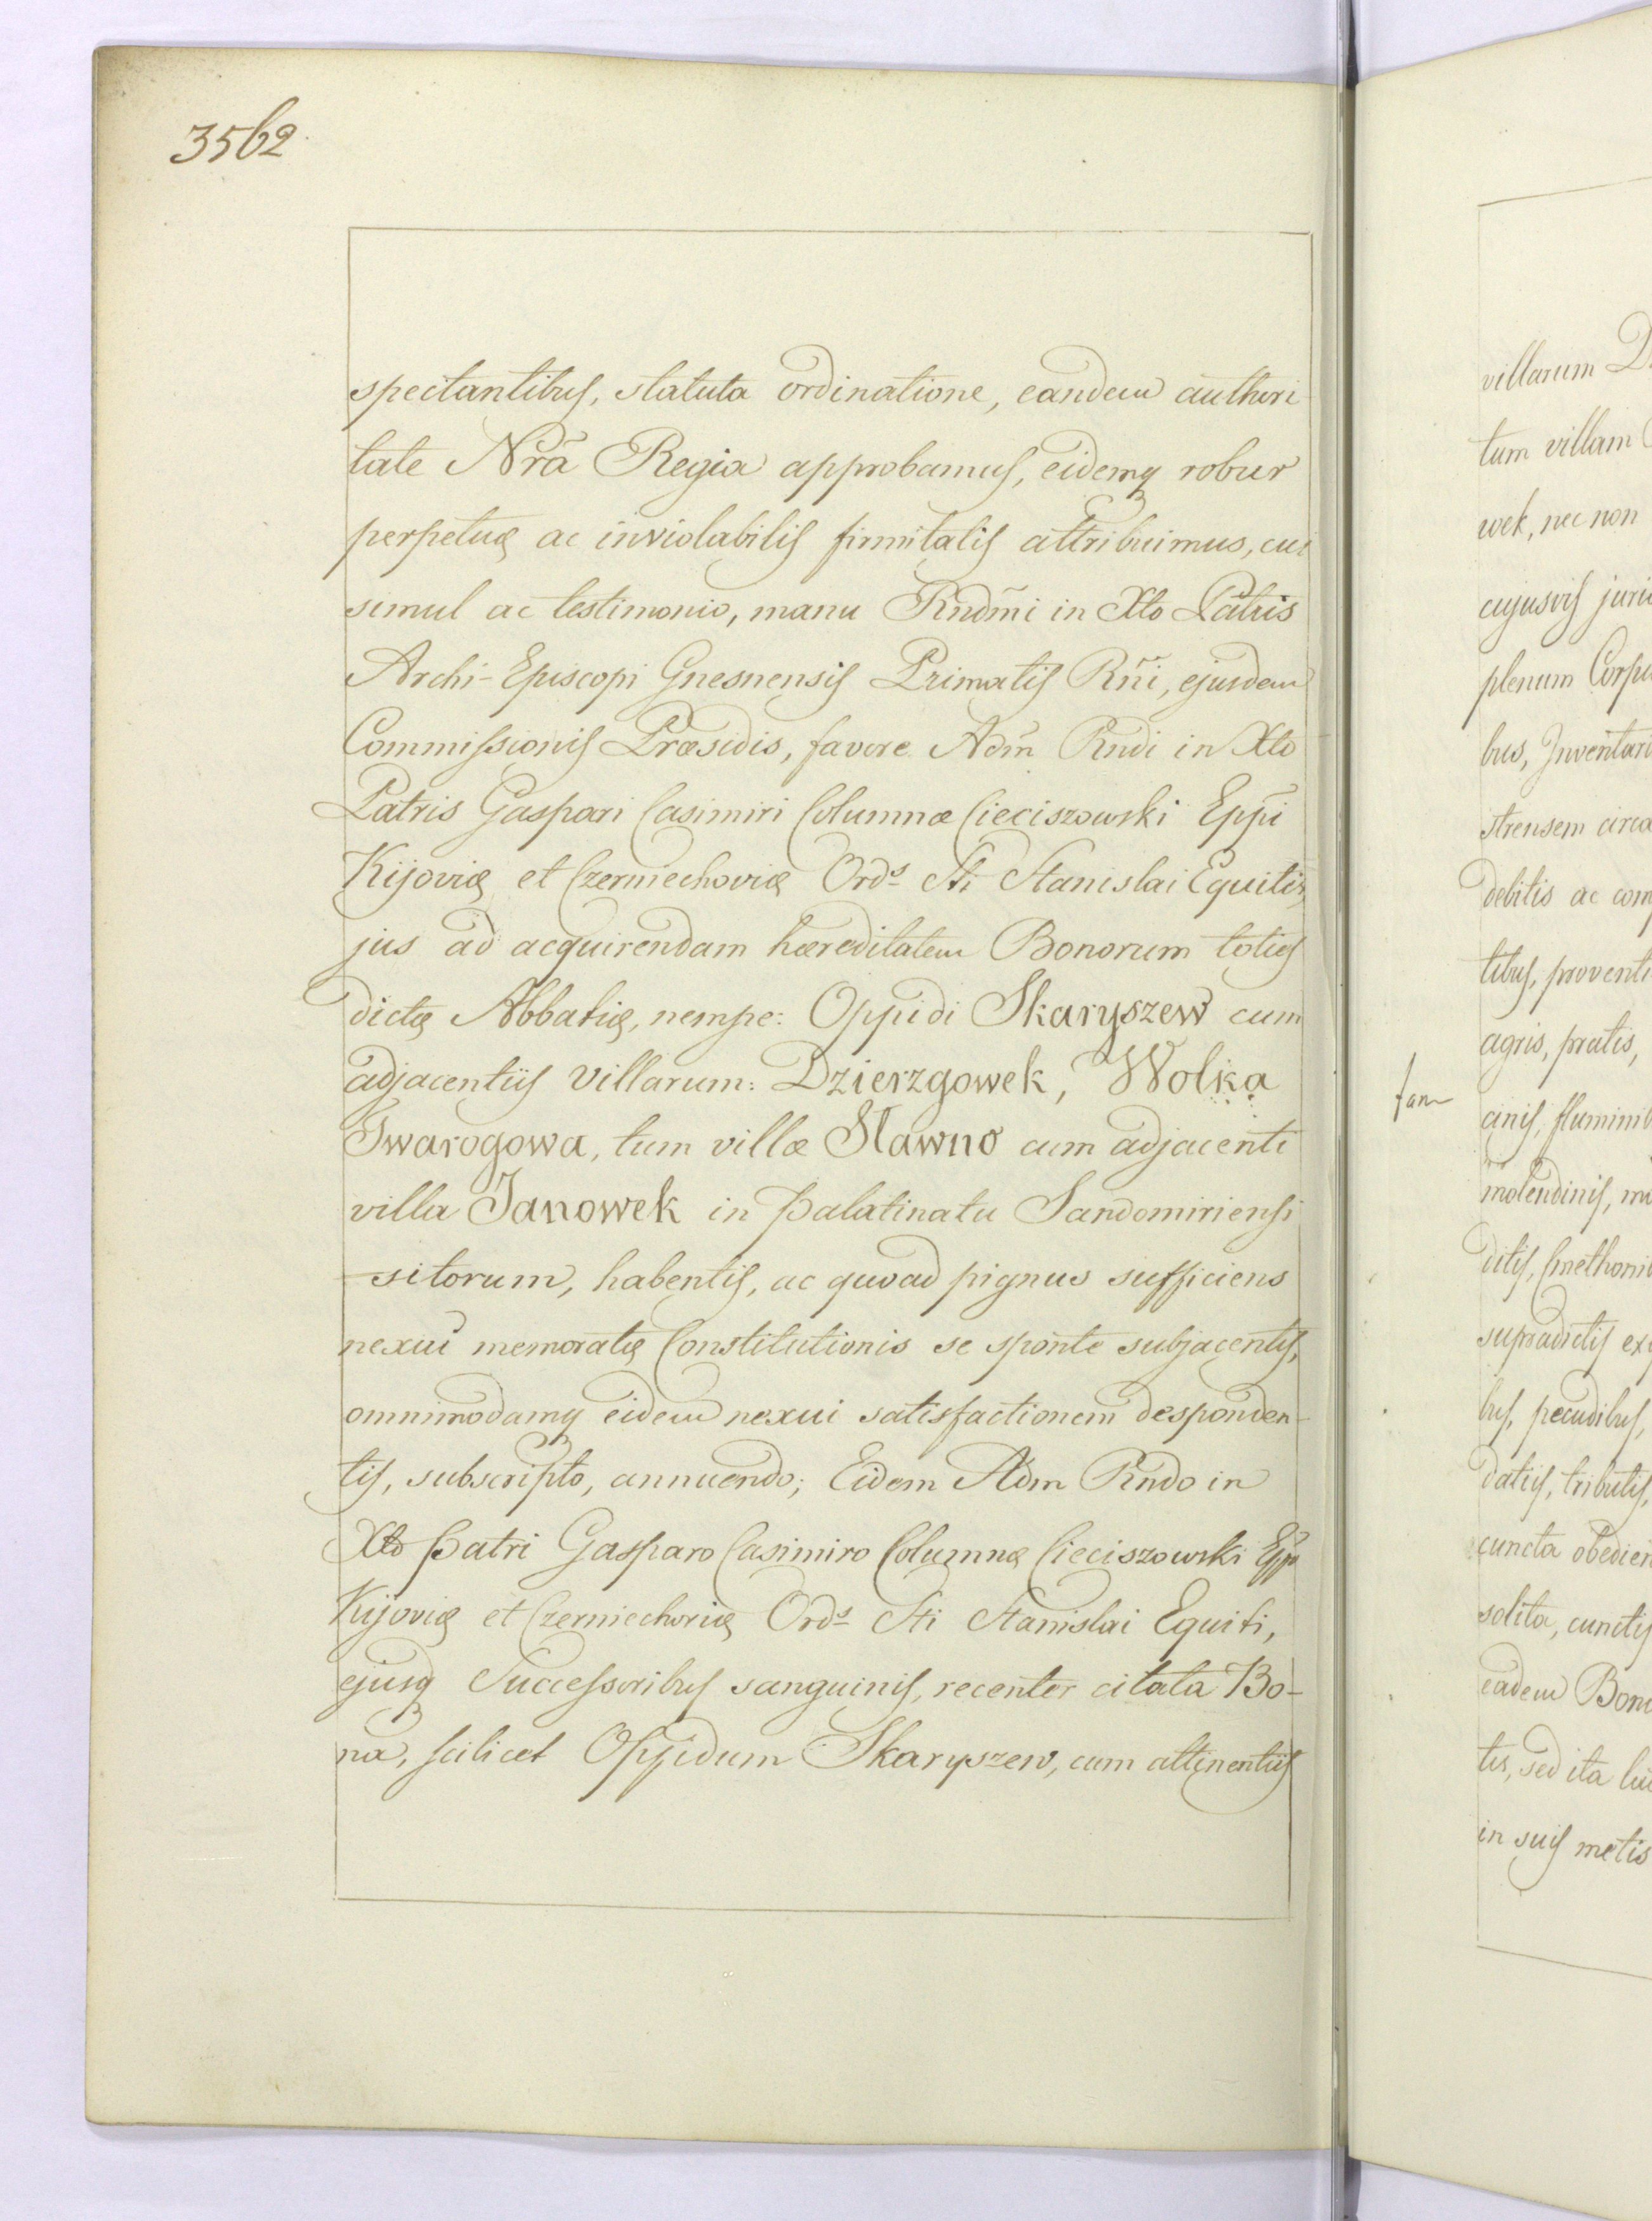 3562
spectantibus, statuta ordinatione, eandem authori
tate Nrã Regia approbamus, eidemq robur
perpetuę ac inviolabilis firmitatis attribuimus, cui
simul ac testimonio, manu Rndm̃i in Xto Patris
Archi-Episcopi Gnesnensis Primatis Rñi, ejusdem
Commissionis Præsidis, favore Adm̃ Rndi in Xto
Patris Gaspari Casimiri Columnæ Cieciszowski Epp̃i
Kijovię et Czerniechovię Ords Sti Stanislai Equitis,
jus ad acquirendam hæreditatem Bonorum toties
dictę Abbatię, nempe: Oppidi Skaryszew cum
adjacentiis Villarum: Dzierzgowek, Wolka
Twarogowa, tum villæ Sławno cum adjacenti
villa Janowek in Palatinatu Sandomiriensi
sitorum, habentis, ac quoad pignus sufficiens
nexui memoratę Constitutionis se sponte subjacentis,
omnimodamq eidem nexui satisfactionem desponden-
tis, subscripto, annuendo; Eidem Adm Rndo in
Xto Patri Gasparo Casimiro Columnę Cieciszowski Epp̃o
Kijovię et Czerniechovię Ords Sti Stanislai Equiti,
ejusq Successoribus sanguinis, recenter citata Bo-
na, scilicet Oppidum Skaryszew, cum attinentiis
villarum
tum villam
wek, nec non
cujusvis
plenum
bus,
strensem
debitis ac
tibus,
agris, pratis,
fam
cinis,
molendinis,
ditis,
supradictis
bus, pecudibus,
datiis, tributis,
cuncta
solita, cunctis
eadem
tis, sed ita
in suis metis